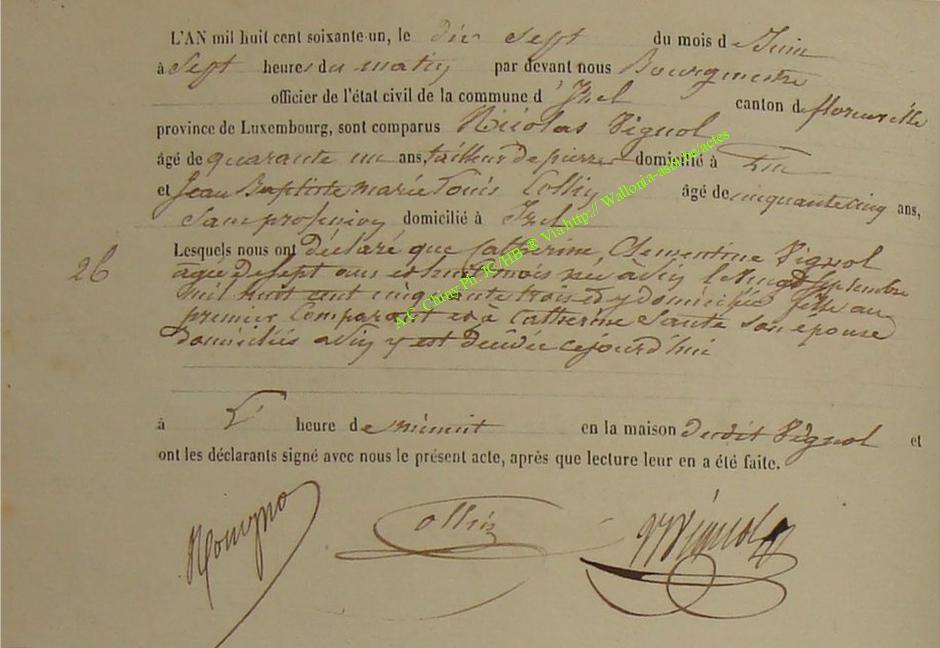 L'AN mil huit cent soixante-un, le dix sept du mois de Juin
à Sept heures du matin par devant nous Bourgmestre
officier de l'état civil de la commune d'Izel canton de florenville
province de Luxembourg, sont comparus Nicolas Pignol
âgé de quarante un ans, tailleur de pierres domicilié à
et Jean Baptiste marie Louis Collin âgé de cinquante cinq ans,
Sans profession domicilié à Izel
Lesquels nous ont déclaré que Catherine, Clementine Pignol
26
agée de sept ans et huit mois née à le Septembre
mil huit cent cinquante trois et y domiciliée fille au
premier Comparant et à Catherine son epouse
domiciliés y est décédée cejourd'hui
à heure de minuit en la maison dudit Pignol et
ont les déclarants signé avec nous le présent acte, après que lecture leur en a été faite.
Collin
Pignol
A.C. Chiny Ph. JC/HB ® Via http:// Wallonia-asbl.be/actes